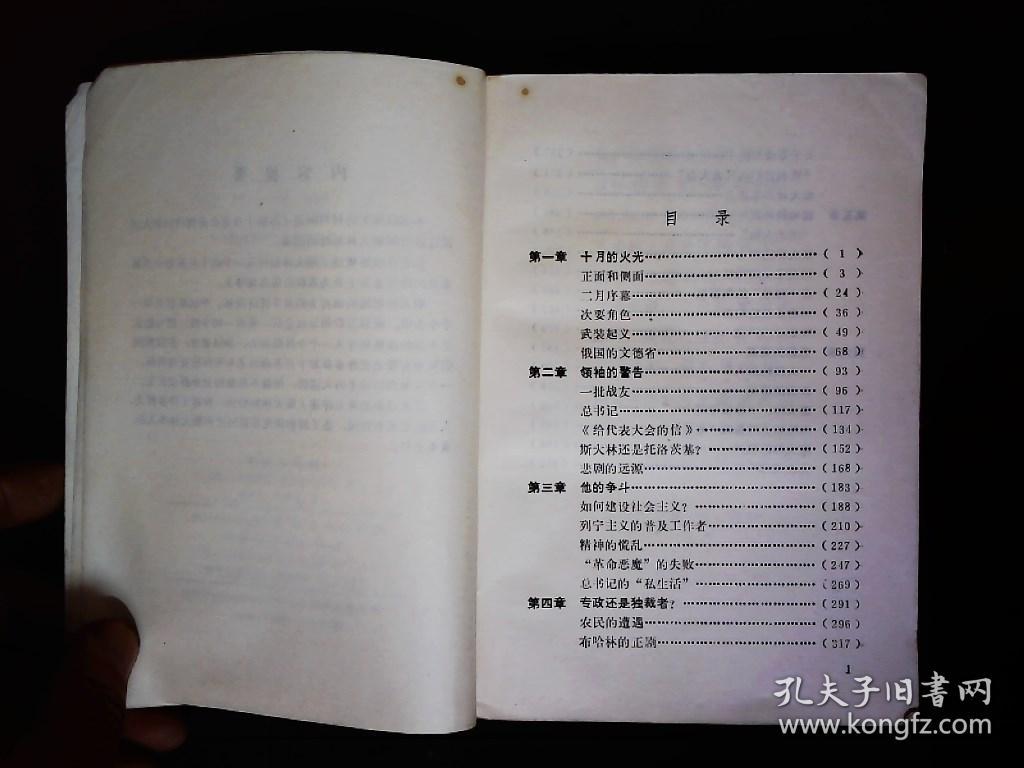 目 录
第一章 十月的火光……………………………………( 1 )
正面和侧面……………………………………( 3 )
二月序幕……………………………………( 24 )
次要角色……………………………………( 36 )
武装起义……………………………………( 49 )
俄国的文德省……………………………………( 68 )
第二章 领袖的警告……………………………………( 93 )
一批战友……………………………………( 96 )
总书记……………………………………( 117 )
《给代表大会的信》……………………………………( 134 )
斯大林还是托洛茨基？……………………………………( 152 )
悲剧的远源……………………………………( 168 )
第三章 他的争斗……………………………………( 183 )
如何建设社会主义？……………………………………( 188 )
列宁主义的普及工作者……………………………………( 210 )
精神的慌乱……………………………………( 227 )
“革命恶魔”的失败……………………………………( 247 )
总书记的“私生活”……………………………………( 269 )
第四章 专政还是独裁者？……………………………………( 291 )
农民的遭遇……………………………………( 296 )
布哈林的正剧……………………………………( 317 )
1
孔夫子旧书网
www.kongfz.com